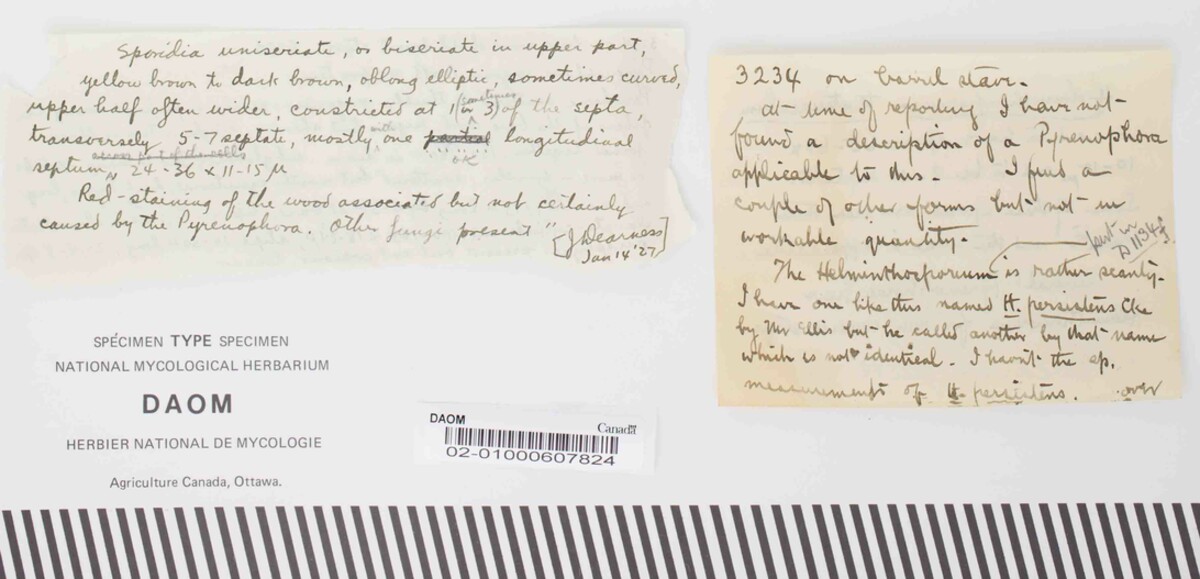 Sporidia uniseriate, or biseriate in upper part,
yellow brown to dark brown, oblong elliptic, sometimes curved,
upper half often wider, constricted at 1 (or sometimes 3) of the septa,
transversely 5-7 septate, mostly with one partial longitudinal
ok
septum across part of the cells 24-36 x 11-15 µ
Red-staining of the wood associated but not certainly
caused by the Pyrenophora. Other fungi present"
[J Dearness]
Jan 14 '27
3234 on barrel stave.
At time of reporting I have not
found a description of a Pyrenophora
applicable to this. I find a
couple of other forms but not in
workable quantity.
The Helminthosporium is rather scanty.
I have one like this named H. persistens Cke
by Mr Ellis but he called another by that name
which is not identical. I havn't the sp.
measurements of H. persistens. over
SPÉCIMEN TYPE SPECIMEN
NATIONAL MYCOLOGICAL HERBARIUM
DAOM
HERBIER NATIONAL DE MYCOLOGIE
Agriculture Canada, Ottawa.
DAOM
Canada
02-01000607824